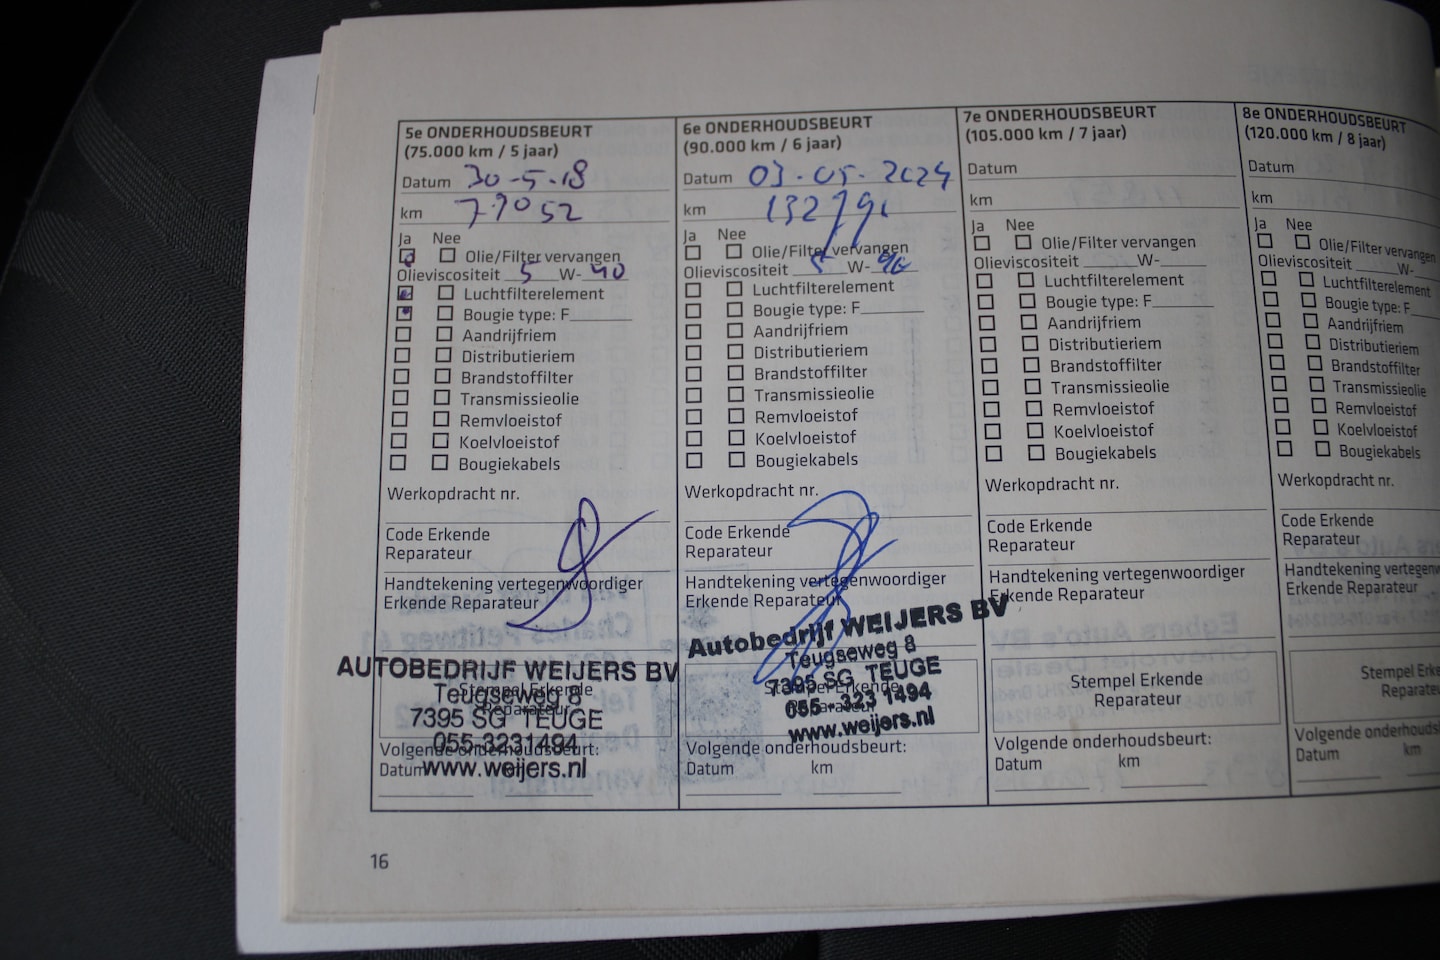 5e ONDERHOUDSBEURT
(75.000 km / 5 jaar)
Datum 30-5-18
km 79052
Ja Nee
Olie/Filter vervangen
Olieviscositeit 5 W-40
Luchtfilterelement
Bougie type: F
Aandrijfriem
Distributieriem
Brandstoffilter
Transmissieolie
Remvloeistof
Koelvloeistof
Bougiekabels
Werkopdracht nr.
Code Erkende
Reparateur
Handtekening vertegenwoordiger
Erkende Reparateur
AUTOBEDRIJF WEIJERS BV
Stempel Erkende
Teugseweg 8
Reparateur
7395 SG TEUGE
055-3231494
Volgende onderhoudsbeurt:
Datum
www.weijers.nl
6e ONDERHOUDSBEURT
(90.000 km / 6 jaar)
Datum 03-05-2024
km
Ja Nee
Olie/Filter vervangen
Olieviscositeit 5 W-
Luchtfilterelement
Bougie type: F
Aandrijfriem
Distributieriem
Brandstoffilter
Transmissieolie
Remvloeistof
Koelvloeistof
Bougiekabels
Werkopdracht nr.
Code Erkende
Reparateur
Handtekening vertegenwoordiger
Erkende Reparateur
Autobedrijf WEIJERS BV
Teugseweg 8
7395 SG TEUGE
Stempel Erkende
055 - 323 1494
Reparateur
www.weijers.nl
Volgende onderhoudsbeurt:
Datum km
7e ONDERHOUDSBEURT
(105.000 km / 7 jaar)
Datum
km
Ja Nee
Olie/Filter vervangen
Olieviscositeit W-
Luchtfilterelement
Bougie type: F
Aandrijfriem
Distributieriem
Brandstoffilter
Transmissieolie
Remvloeistof
Koelvloeistof
Bougiekabels
Werkopdracht nr.
Code Erkende
Reparateur
Handtekening vertegenwoordiger
Erkende Reparateur
Stempel Erkende
Reparateur
Volgende onderhoudsbeurt:
Datum km
8e ONDERHOUDSBEURT
(120.000 km / 8 jaar)
Datum
km
Ja Nee
Olie/Filter vervangen
Olieviscositeit W-
Luchtfilterelement
Bougie type: F
Aandrijfriem
Distributieriem
Brandstoffilter
Transmissieolie
Remvloeistof
Koelvloeistof
Bougiekabels
Werkopdracht nr.
Code Erkende
Reparateur
Handtekening vertegenw
Erkende Reparateur
Stempel Erke
Reparate
Volgende onderhouds
Datum km
16